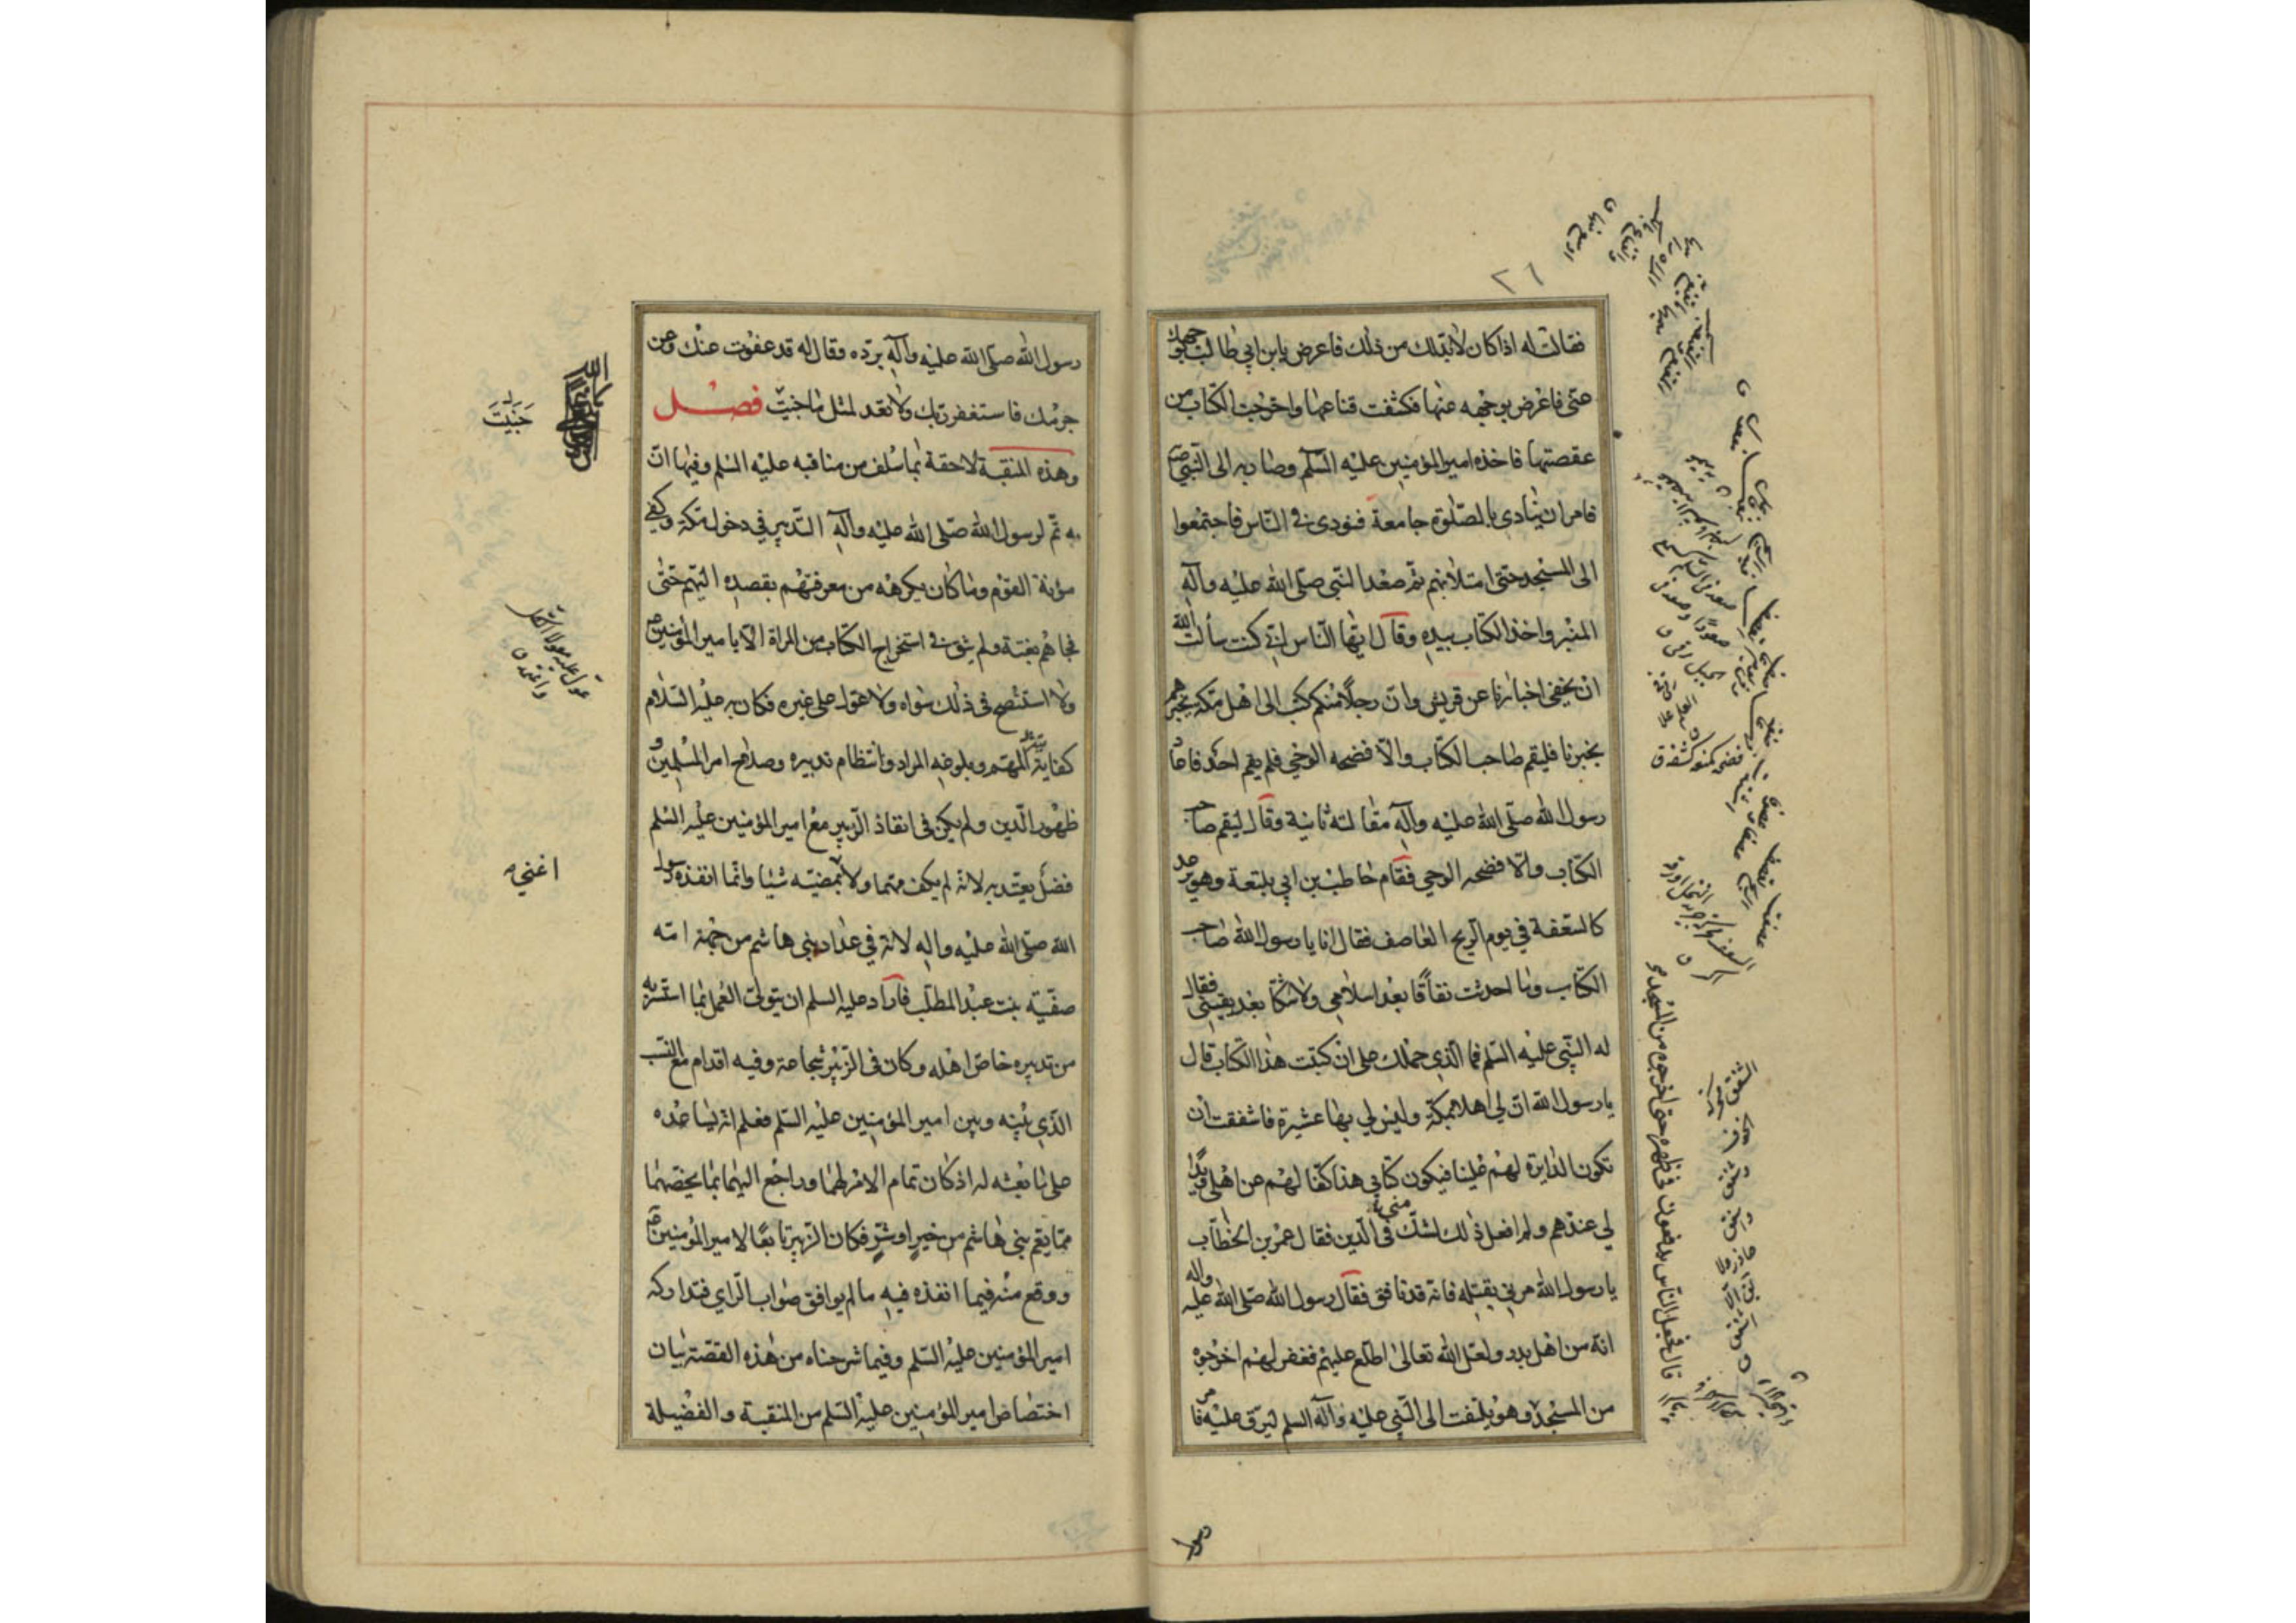 ٢٦
فقالت له اذا كان لا بد لك من ذلك فاعرض يا بن ابي طالب بوجهك
عني فاعرض بوجهه عنها فكشفت قناعها واخرجت الكتاب من
عقصتها فاخذه امير المؤمنين عليه السلم وصار به الى النبي ص
فامر ان ينادى بالصلوة جامعة فنودى في الناس فاجتمعوا
الى المسجد حتى امتلأ بهم ثم صعد النبي صلى الله عليه وآله
المنبر واخذ الكتاب بيده وقال ايها الناس اني كنت سألت الله
ان يخفي اخبارنا عن قريش وان رجلا منكم كتب الى اهل مكة يخبرهم
بخبرنا فليقم صاحب الكتاب والا فضحه الوحي فلم يقم احد فاعاد
رسول الله صلى الله عليه وآله مقالته ثانية وقال ليقم صاحب
الكتاب والا فضحه الوحي فقام حاطب بن ابي بلتعة وهو يرعد
كالسعفة في يوم الريح العاصف فقال انا يا رسول الله صاحب
الكتاب وما احدثت نفاقا بعد اسلامي ولا شكا بعد يقيني فقال
له النبي عليه السلم فما الذي حملك على ان كتبت هذا الكتاب قال
يا رسول الله ان لي اهلا بمكة وليس لي بها عشيرة فاشفقت ان
تكون الدايرة لهم علينا فيكون كتابي هذا كفا لهم عن اهلي ويدا
لي عندهم ولم افعل ذلك لشك مني في الدين فقال عمر بن الخطاب
يا رسول الله مرني بقتله فانه قد نافق فقال رسول الله صلى الله عليه واله
انه من اهل بدر ولعل الله تعالى اطلع عليهم فغفر لهم اخرجوه
من المسجد وهو يلتفت الى النبي عليه وآله السلم ليرق عليه فامر
قال فجعل الناس يدفعون في ظهره حتى اخرجوه من المسجد
رسول
رسول الله صلى الله عليه وآله برده وقال له قد عفوت عنك وعن
جرمك فاستغفر ربك ولا تعد لمثل ما جنيت فصل
وهذه المنقبة لاحقة بما سلف من مناقبه عليه السلم وفيها ان
به تم لرسول الله صلى الله عليه وآله التدبير في دخول مكة وكفى
مؤنة القوم وما كان يكرهه من معرفتهم بقصده اليهم حتى
فجاهم بغتة ولم يثق في استخراج الكتاب من المراة الا بامير المؤمنين ع
ولا استنصح في ذلك سواه ولا عول على غيره فكان به عليه السلام
كفايته المهم وبلوغه المراد وانتظام تدبيره وصلاح امر المسلمين و
ظهور الدين ولم يكن في انفاذ الزبير مع امير المؤمنين عليه السلم
فضل يعتد به لانه لم يكف مهما ولا بمضيه شيئا وانما انفذه رسول
الله صلى الله عليه واله لانه في عداد بني هاشم من جهة امه
صفية بنت عبد المطلب فاراد عليه السلم ان يتولى العمل بما استسر به
من تدبيره خاص اهله وكان في الزبير شجاعة وفيه اقدام مع النسب
الذي بينه وبين امير المؤمنين عليه السلم فعلم انه يساعده
على ما بعثه له اذ كان تمام الامر لهما وراجع اليهما بما يخصهما
مما يعم بني هاشم من خير او شر فكان الزبير تابعا لامير المؤمنين ع
ووقع منه فيما انفذه فيه ما لم يوافق صواب الراي فتداركه
امير المؤمنين عليه السلم وفيما شرحناه من هذه القصة بيان
اختصاص امير المؤمنين عليه السلم من المنقبة والفضيلة
جنيت
اغني